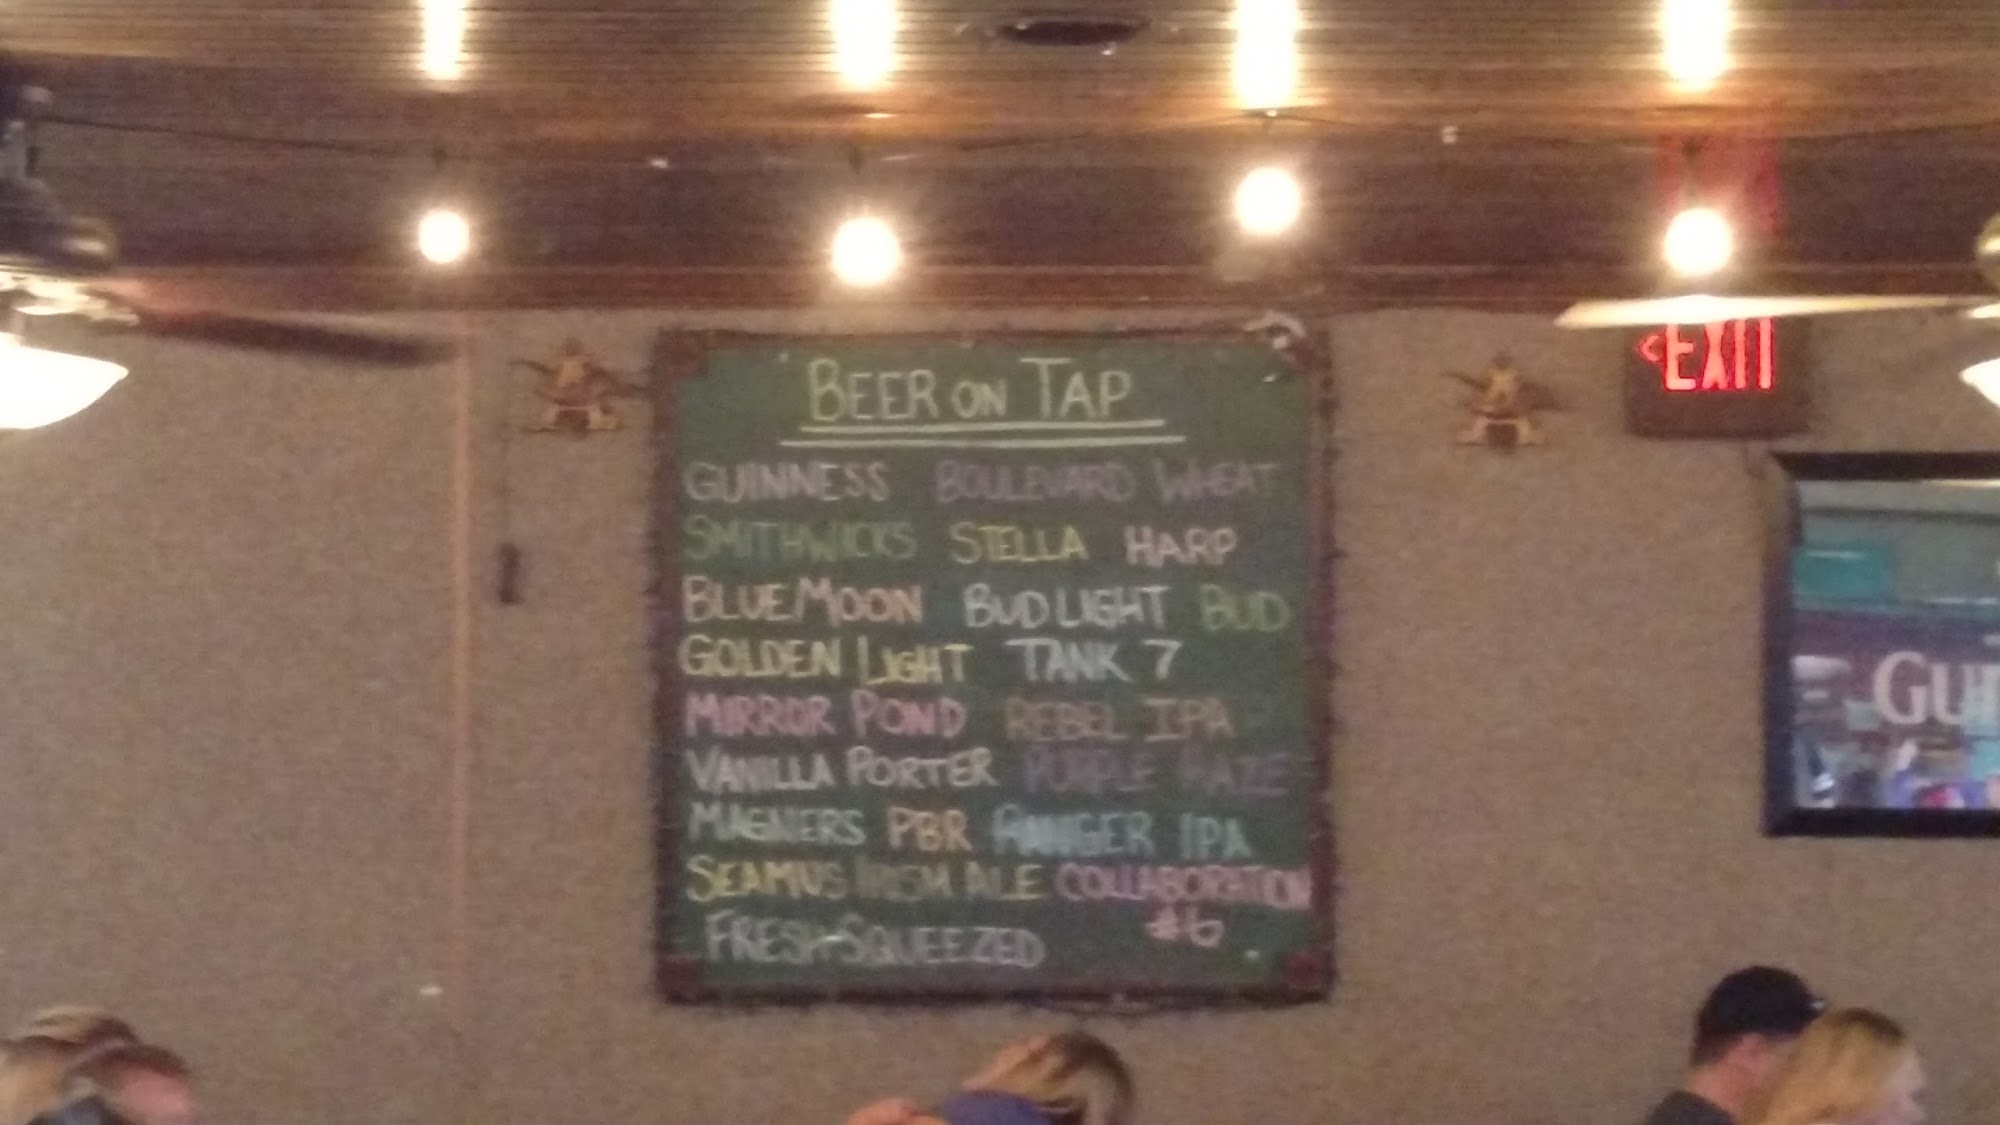 BEER ON TAP
GUINNESS BOULEVARD WHEAT
SMITHWICKS STELLA HARP
BLUE MOON BUD LIGHT BUD
GOLDEN LIGHT TANK 7
MIRROR POND REBEL IPA
VANILLA PORTER PURPLE HAZE
MAGNERS PBR RANGER IPA
SEAMUS IRISH ALE COLLABORATION
#6
FRESH SQUEEZED
<EXIT
GUI